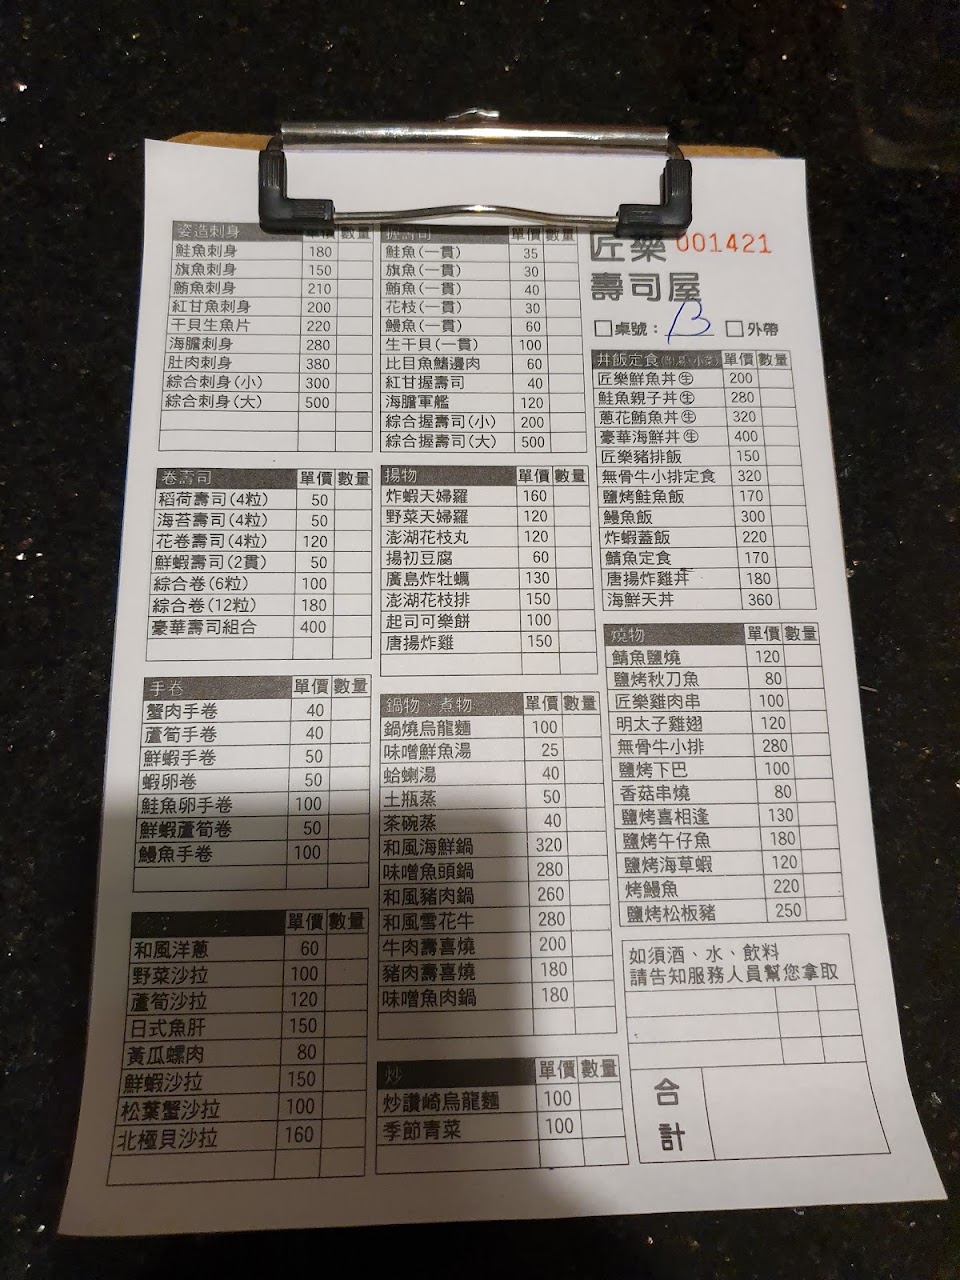 姿造刺身 單價 數量
鮭魚刺身 180
旗魚刺身 150
鮪魚刺身 210
紅甘魚刺身 200
干貝生魚片 220
海膽刺身 280
肚肉刺身 380
綜合刺身(小) 300
綜合刺身(大) 500
卷壽司 單價 數量
稻荷壽司(4粒) 50
海苔壽司(4粒) 50
花卷壽司(4粒) 120
鮮蝦壽司(2貫) 50
綜合卷(6粒) 100
綜合卷(12粒) 180
豪華壽司組合 400
手卷 單價 數量
蟹肉手卷 40
蘆筍手卷 40
鮮蝦手卷 50
蝦卵卷 50
鮭魚卵手卷 100
鮮蝦蘆筍卷 50
鰻魚手卷 100
單價 數量
和風洋蔥 60
野菜沙拉 100
蘆筍沙拉 120
日式魚肝 150
黃瓜螺肉 80
鮮蝦沙拉 150
松葉蟹沙拉 100
北極貝沙拉 160
握壽司 單價 數量
鮭魚(一貫) 35
旗魚(一貫) 30
鮪魚(一貫) 40
花枝(一貫) 30
鰻魚(一貫) 60
生干貝(一貫) 100
比目魚鰭邊肉 60
紅甘握壽司 40
海膽軍艦 120
綜合握壽司(小) 200
綜合握壽司(大) 500
揚物 單價 數量
炸蝦天婦羅 160
野菜天婦羅 120
澎湖花枝丸 120
揚初豆腐 60
廣島炸牡蠣 130
澎湖花枝排 150
起司可樂餅 100
唐揚炸雞 150
鍋物、煮物 單價 數量
鍋燒烏龍麵 100
味噌鮮魚湯 25
蛤蜊湯 40
土瓶蒸 50
茶碗蒸 40
和風海鮮鍋 320
味噌魚頭鍋 280
和風豬肉鍋 260
和風雪花牛 280
牛肉壽喜燒 200
豬肉壽喜燒 180
味噌魚肉鍋 180
炒 單價 數量
炒讚崎烏龍麵 100
季節青菜 100
匠樂 001421
壽司屋
□桌號: B □外帶
丼飯定食(附湯、小菜) 單價 數量
匠樂鮮魚丼㊓ 200
鮭魚親子丼㊓ 280
蔥花鮪魚丼㊓ 320
豪華海鮮丼㊓ 400
匠樂豬排飯 150
無骨牛小排定食 320
鹽烤鮭魚飯 170
鰻魚飯 300
炸蝦蓋飯 220
鯖魚定食 170
唐揚炸雞丼 180
海鮮天丼 360
燒物 單價 數量
鯖魚鹽燒 120
鹽烤秋刀魚 80
匠樂雞肉串 100
明太子雞翅 120
無骨牛小排 280
鹽烤下巴 100
香菇串燒 80
鹽烤喜相逢 130
鹽烤午仔魚 180
鹽烤海草蝦 120
烤鰻魚 220
鹽烤松板豬 250
如須酒、水、飲料
請告知服務人員幫您拿取
合
計